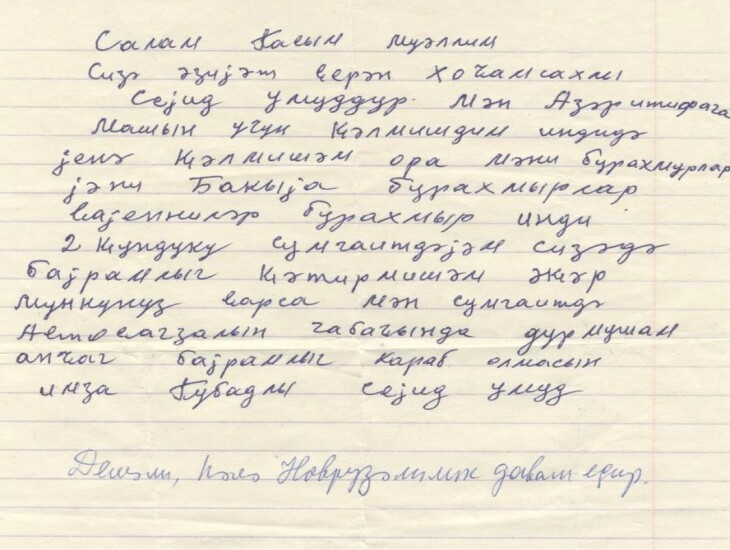 Салам Гасым муәллим
Сизә әзијәт верән Хочамсахлы
Сејид Умуддур. Мән Азәритифага
Машын үчүн кәлмишдим индидә
јенә кәлмишәм ора мәни бурахмырлар
јәни Бакыја бурахмырлар
вајенниләр бурахмыр инди
2 күндүкү сумгаитдәјәм сизәдә
бајрамлыг кәтирмишәм әкәр
мүнкүнүз варса мән сумгаитдә
Автовагзалын габагында дурмушам
анчаг бајрамлыг хараб олмасын
имза Губадлы Сејид Умуд
Демәли, һәлә Новрузәлилик давам едир.